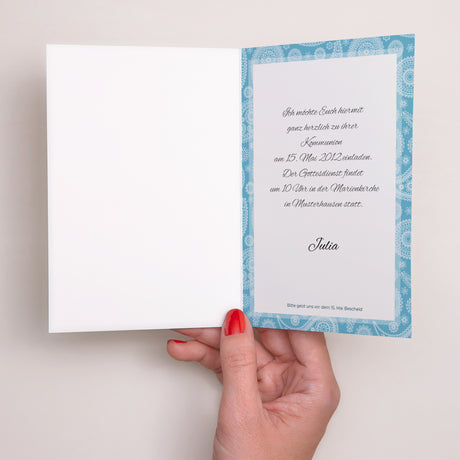 Ich möchte Euch hiermit
ganz herzlich zu ihrer
Kommunion
am 15. Mai 2012 einladen.
Der Gottesdienst findet
um 10 Uhr in der Marienkirche
in Musterhausen statt.
Julia
Bitte gebt uns vor dem 15. Mai Bescheid